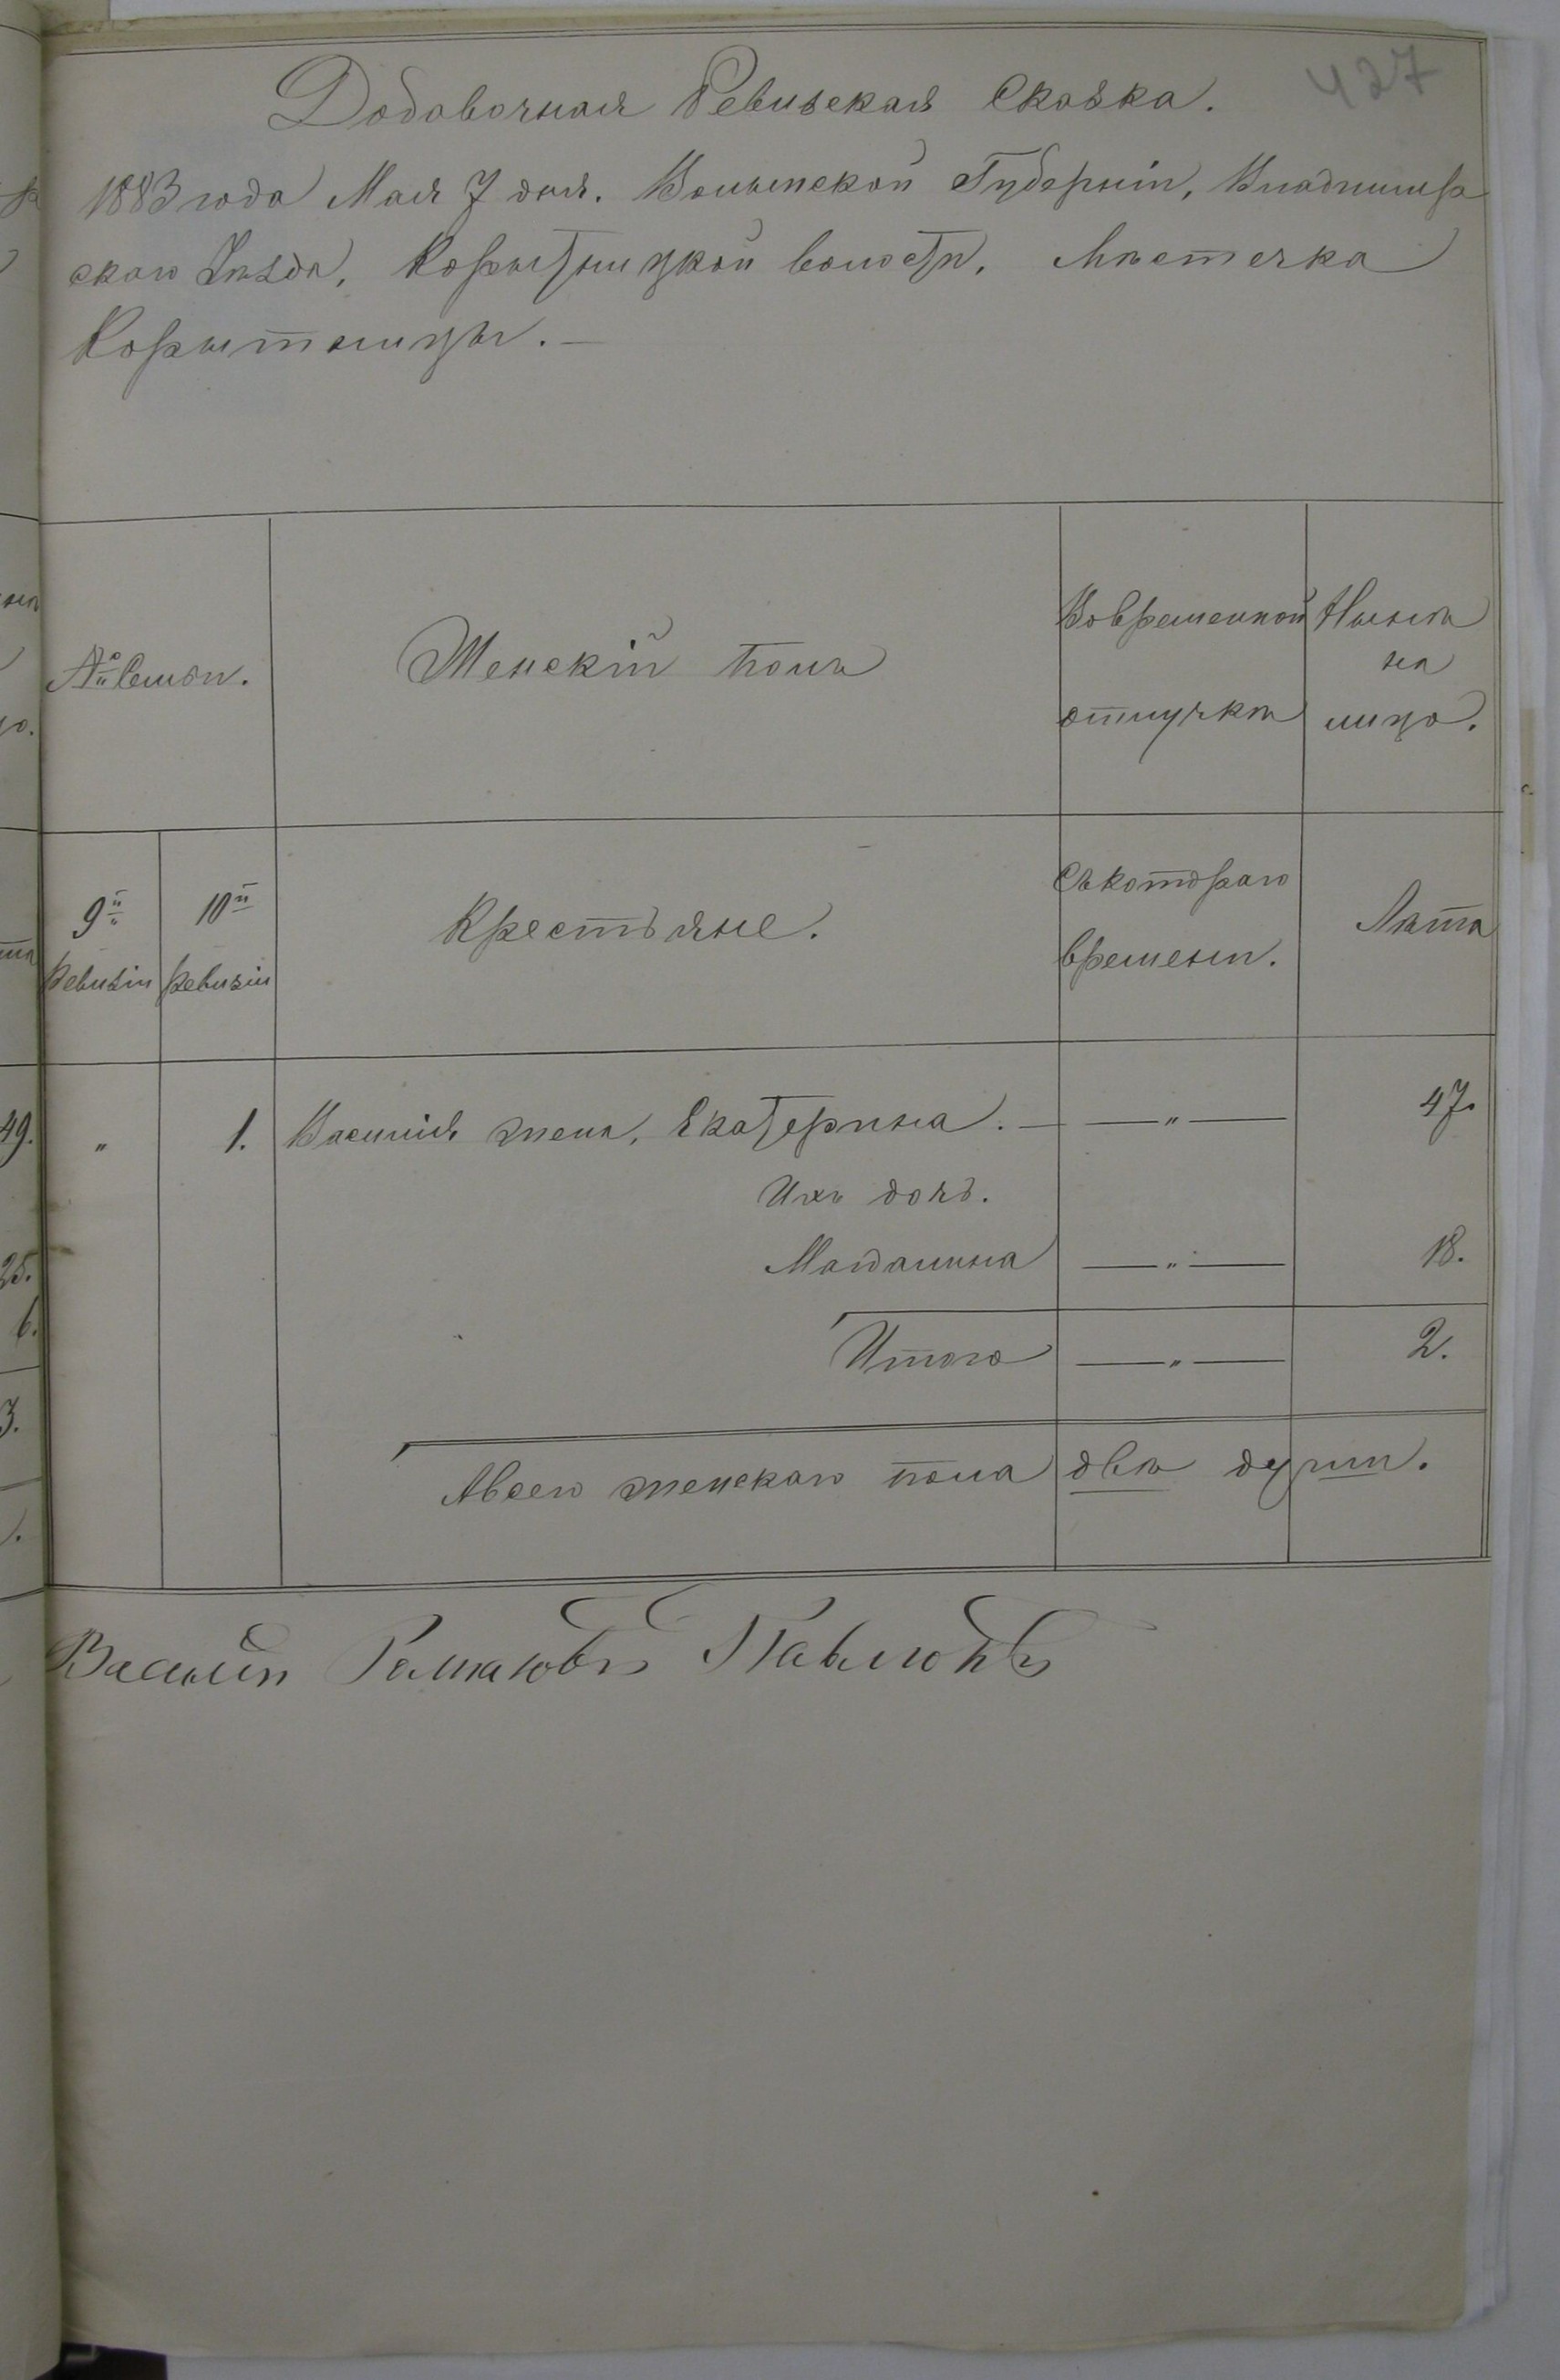 427
Додавочная Ревизская Сказка.
1883 года Мая 7 дня. Волынской Губерніи, Владимір
скаго Уѣзда, Корытницкой волости, Мѣстечка
Корытницы. —
№ семьи.
Женскій полъ
Во временной
отлучкѣ
Нынѣ
на
лицо.
9й
ревизіи
10й
ревизіи
Крестьяне.
Съ котораго
времени.
Лѣта
„ 1. Василія жена, Екатерина. — —„— 47.
Ихъ дочь.
Магдалина —„— 18.
Итого —„— 2.
А всего женскаго пола двѣ души.
Василій Романовъ Павлюкъ
49.
25.
6.
3.